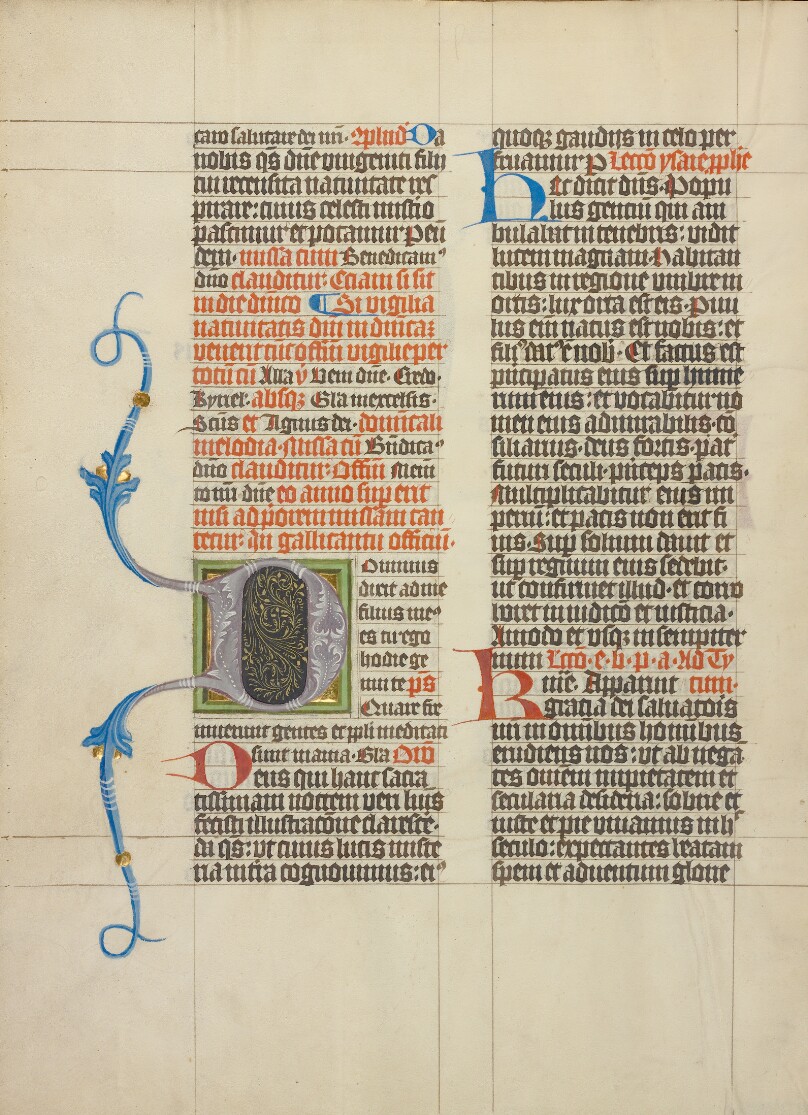 caro salutare dei nri. Cplnd Da
nobis qs dne unigeniti filii
tui recensita natiuitate res
pirare: cuius celesti misterio
pascimur et potamur Per eun
dem. missa cum Benedicamus
dno clauditur: Eciam si sit
in die dnico Si vigilia
natiuitatis dni in dnicaz
venerit tunc offm vigilie per
totum cum Alla v Veni dne. Credo.
Kyriel. absqz Gla in excelsis.
Scus et Agnus dei. dominicali
melodia. Missa cum Bndica
dno clauditur. Offm Mem
to nri dne eo anno sup erit
nisi ad porem missam can
tetur. In gallicantu officium.
Dominus
dixit ad me
filius me
es tu ego
hodie ge
nui te ps
Quare fre
muerunt gentes et ppli meditati
sunt inania. Gla Oro
Deus qui hanc sacra
tissimam noctem veri luis
fecisti illustracione claresce.
da qs: vt cuius lucis miste
ria in tra cognouimus: ei
quoqz gaudiis in celo per
fruamur P Lecco ysaie pphe
Hec dicit dns. Popu
lus gentium qui am
bulabat in tenebris: vidit
lucem magnam. habitan
tibus in regione vmbre m
ortis: lux orta est eis. Puu
lus eni natus est nobis: et
fili datus e nob. Et factus est
pncipatus eius sup hume
rum eius: et vocabitur no
men eius admirabilis. co
siliarius. deus fortis. pat
futuri seculi. pnceps pacis.
Multiplicabitur eius im
perium: et pacis non erit fi
nis. Sup solium dauit et
sup regnum eius sedebit.
ut confirmet illud. et corro
boret in iudicio et iusticia.
Amodo et vsqz in sempiter
num Lcco. e. b. p. a. Ad Ty
Rme. Apparuit tum.
gracia dei saluatoris
nri in omnibus hominibus
erudiens nos: vt abnega
tes omnem impietatem et
secularia desideria: sobrie et
iuste et pie viuamus in h
seculo: expectantes beatam
spem et aduentum glorie